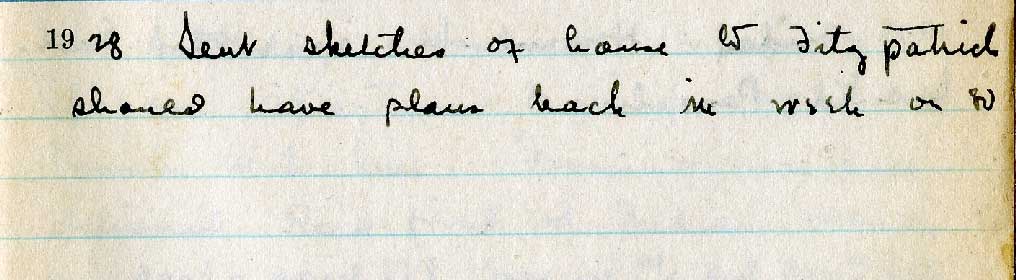 1928 Sent sketches of house to Fitzpatrick
should have plans back in week or so